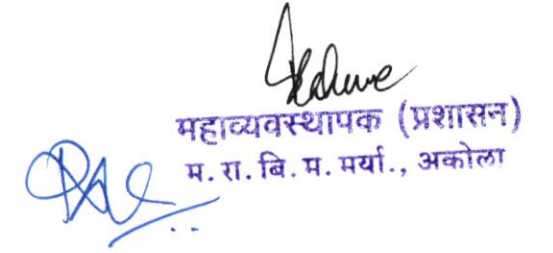 महाव्यवस्थापक (प्रशासन)
म. रा. बि. म. मर्या., अकोला